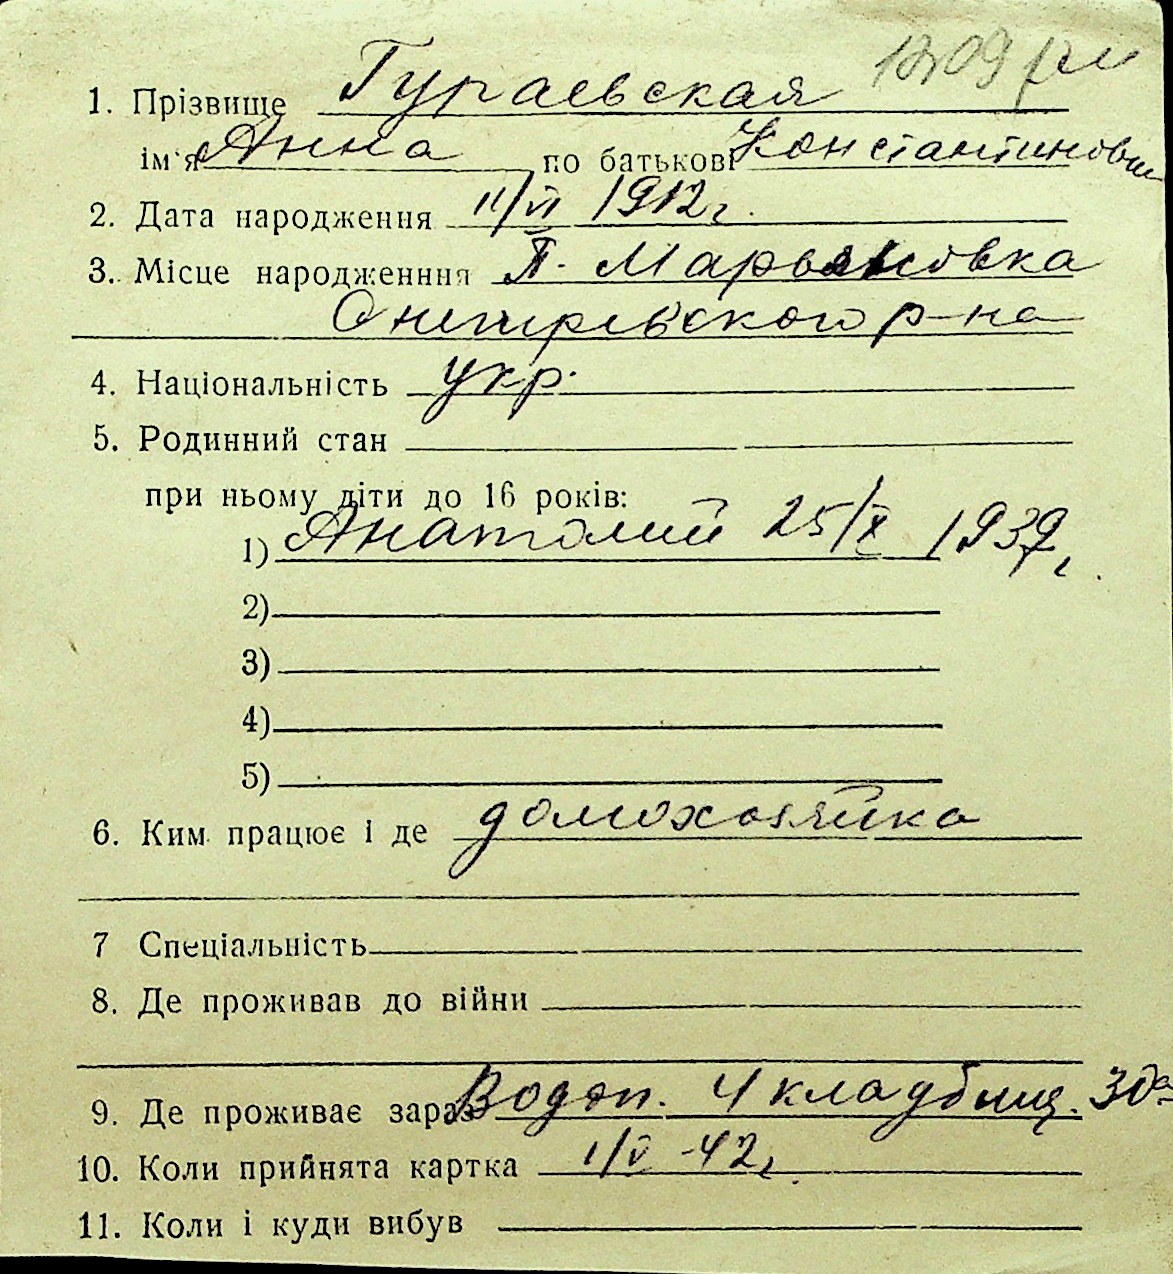 1. Прізвище Гураевская
ім'я Анна по батькові Константиновн
2. Дата народження 11/VI 1912 г.
3. Місце народженння П. Марьяновка
Снигиревского р-на
4. Національність укр.
5. Родинний стан
при ньому діти до 16 років:
1) Анатолий 25/X 1939 г.
2)
3)
4)
5)
6. Ким працює і де домохозяйка
7 Спеціальність
8. Де проживав до війни
9. Де проживає зараз Водоп. 4 кладбищ. 30а
10. Коли прийнята картка 1/V-42 г.
11. Коли і куди вибув